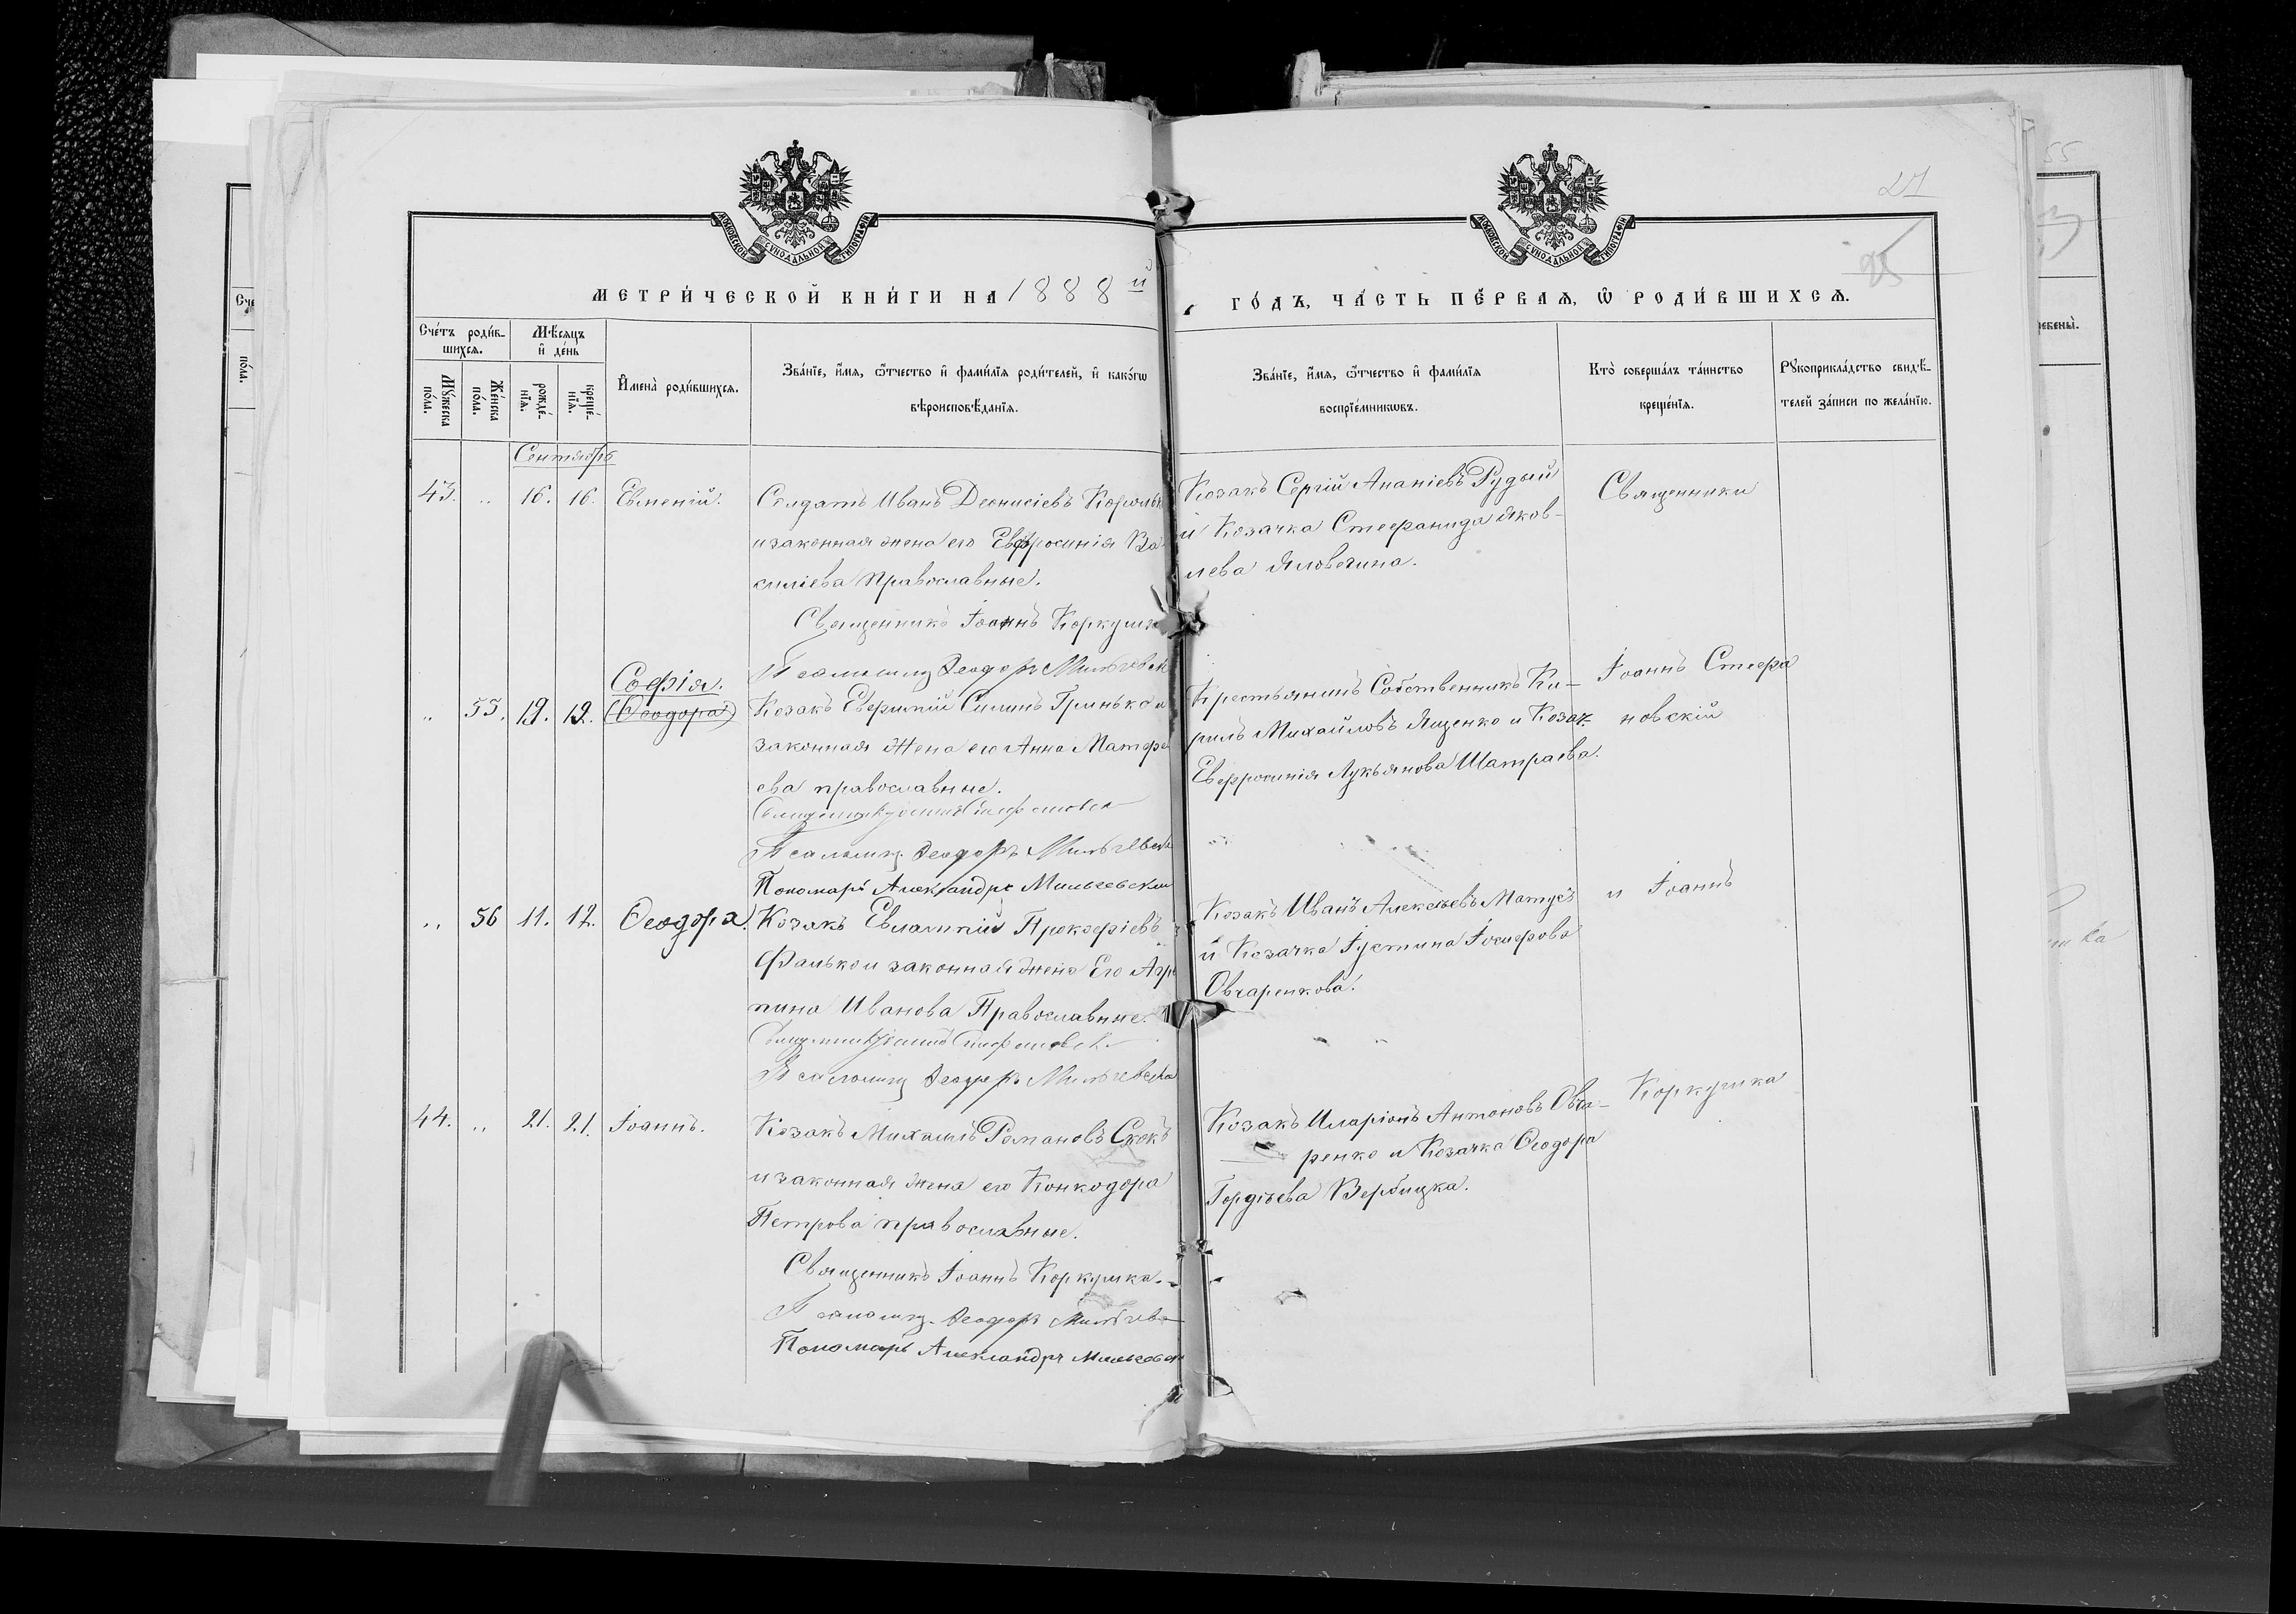 27
25
МЕТРИ́ЧЕСКОЙ КНИ́ГИ НА 1888й
ГО́ДЪ, ЧА́СТЬ ПЕ́РВАѦ, Ѿ РОДИ́ВШИХСѦ.
Сче́тъ роди́в-
шихсѧ.
Мѣ́сѧцъ
и҆ де́нь
Мꙋ́жеска по́ла.
Же́нска по́ла.
рожде́-
нїѧ.
креще́-
нїѧ.
И҆мена̀ роди́вшихсѧ.
Зва́нїе, и҆́мѧ, ѻ҆́тчество и҆ фами́лїѧ роди́телей, и҆ како́гѡ
вѣроисповѣ́данїѧ.
Зва́нїе, и҆́мѧ, ѻ҆́тчество и҆ фами́лїѧ
воспрїе́мникѡвъ.
Кто̀ соверша́лъ та́инство
креще́нїѧ.
Рꙋкоприкла́дство свидѣ́-
телей за́писи по жела́нїю.
Сентябрь
43. „ 16. 16. Евмений. Солдатъ Иванъ Дионисіевъ
и законная жена его Евфросинія Ва
силіева Православные.
Священникъ Іоаннъ Коркушка
Псаломщ Ѳеодоръ Мильчевск
Козакъ Сергій Ананіевъ Рудый
и Козачка Стефанида Яков-
лева Яловегина.
Священники
„ 55. 19. 19. София.
(Ѳеодора)
Козакъ Евфимій Силинъ Гринько и
законная Жена его Анна Матфе
ева православные.
Священникъ Іоаннъ Стефановск
Псаломщ. Ѳеодоръ Мильчевск
Пономарь Александръ Мильчевский
Крестьянинъ Собственникъ Ки-
рилъ Михайловъ Яценко и Козач.
Евфросинія Лукьянова Шатраева.
Іоаннъ Стефа
новскій
„ 56 11. 12. Ѳеодора. Козакъ Евлампій Прокофіевъ
Фалько и законная жена Его Агри
пина Иванова Православные.
Священникъ Іоаннъ Стефановск
Псаломщ Ѳеодоръ Мильчевска
Козакъ Иванъ Алексѣевъ Матусъ
и Козачка Іустина Іосифова
Овчаренкова.
и Іоаннъ
44. „ 21. 21. Іоаннъ. Козакъ Михаилъ Романовъ Скокъ
и законная жена его Конкодора
Петрова православные.
Священникъ Іоаннъ Коркушка.
Псаломщ. Ѳеодоръ Мильчев
Пономарь Александръ Мильчевск
Козакъ Иларіонъ Антоновъ Овча-
ренко и Козачка Ѳеодора
Гордѣева Вербицка.
Коркушка